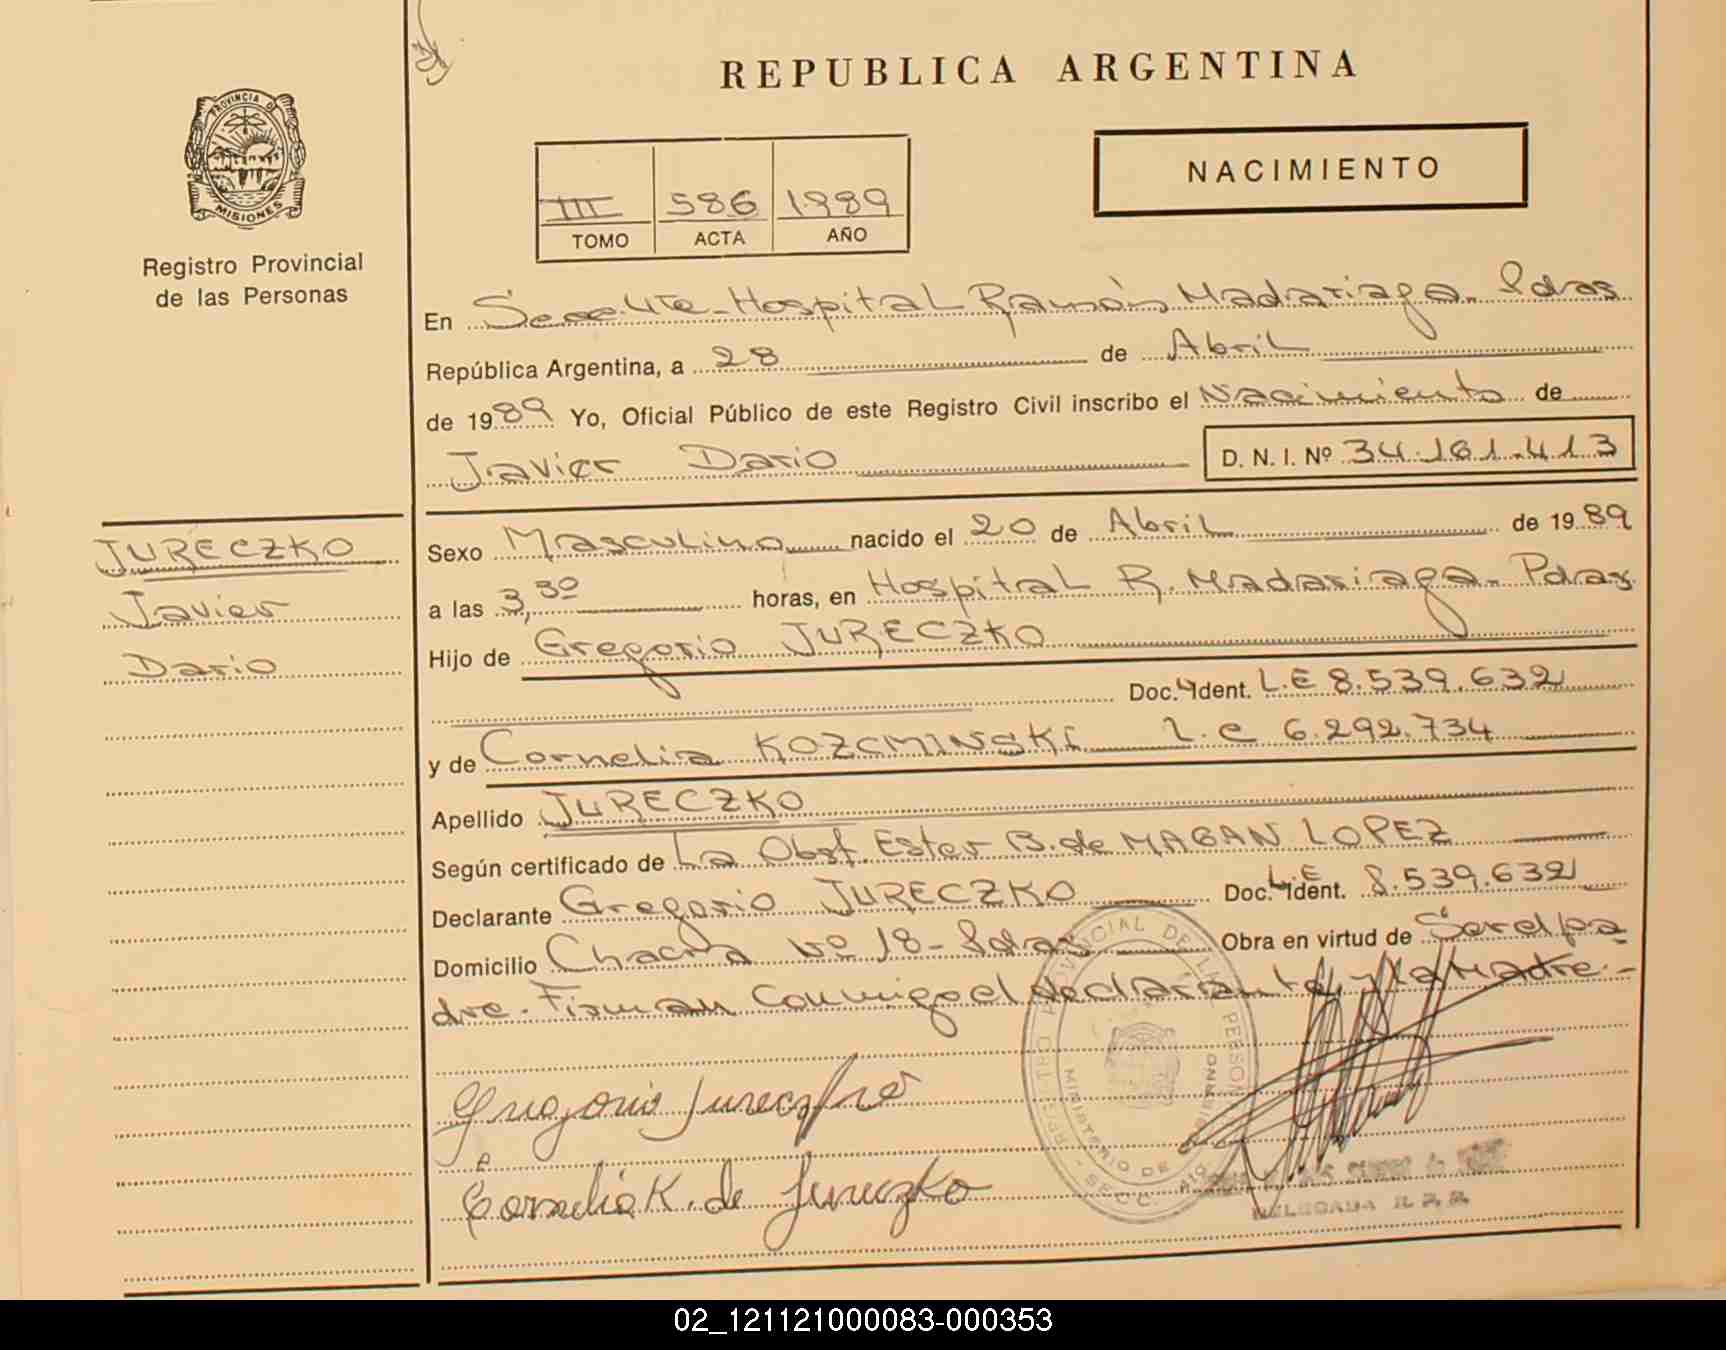 REPUBLICA ARGENTINA
PROVINCIA D
MISIONES
Registro Provincial
de las Personas
III 586 1989
TOMO ACTA AÑO
NACIMIENTO
En Hospital Ramón Madariaga - Pdas
República Argentina, a 28 de Abril
de 1989 Yo, Oficial Público de este Registro Civil inscribo el Nacimiento de
Javier Dario D. N. I. Nº 34.161.413
JURECZKO
Javier
Dario
Sexo Masculino nacido el 20 de Abril de 1989
a las 3,30 horas, en Hospital R. Madariaga - Pdas
Hijo de Gregorio JURECZKO
Doc. Ident. L.E 8.539.632
y de Cornelia KOZCMINSKI L.C 6.292.734
Apellido JURECZKO
Según certificado de La Obst. Ester B. de MAGAN LOPEZ
Declarante Gregorio JURECZKO Doc. Ident. L.E 8.539.632
Domicilio Chacra Nº 18 - Pdas Obra en virtud de Ser el pa
dre. Firman Conmigo el declarante y la Madre -
Gregorio Jureczko
Cornelia K. de Jureczko
MINISTERIO DE GOBIERNO
DELEGADA R.P.P.
02_121121000083-000353